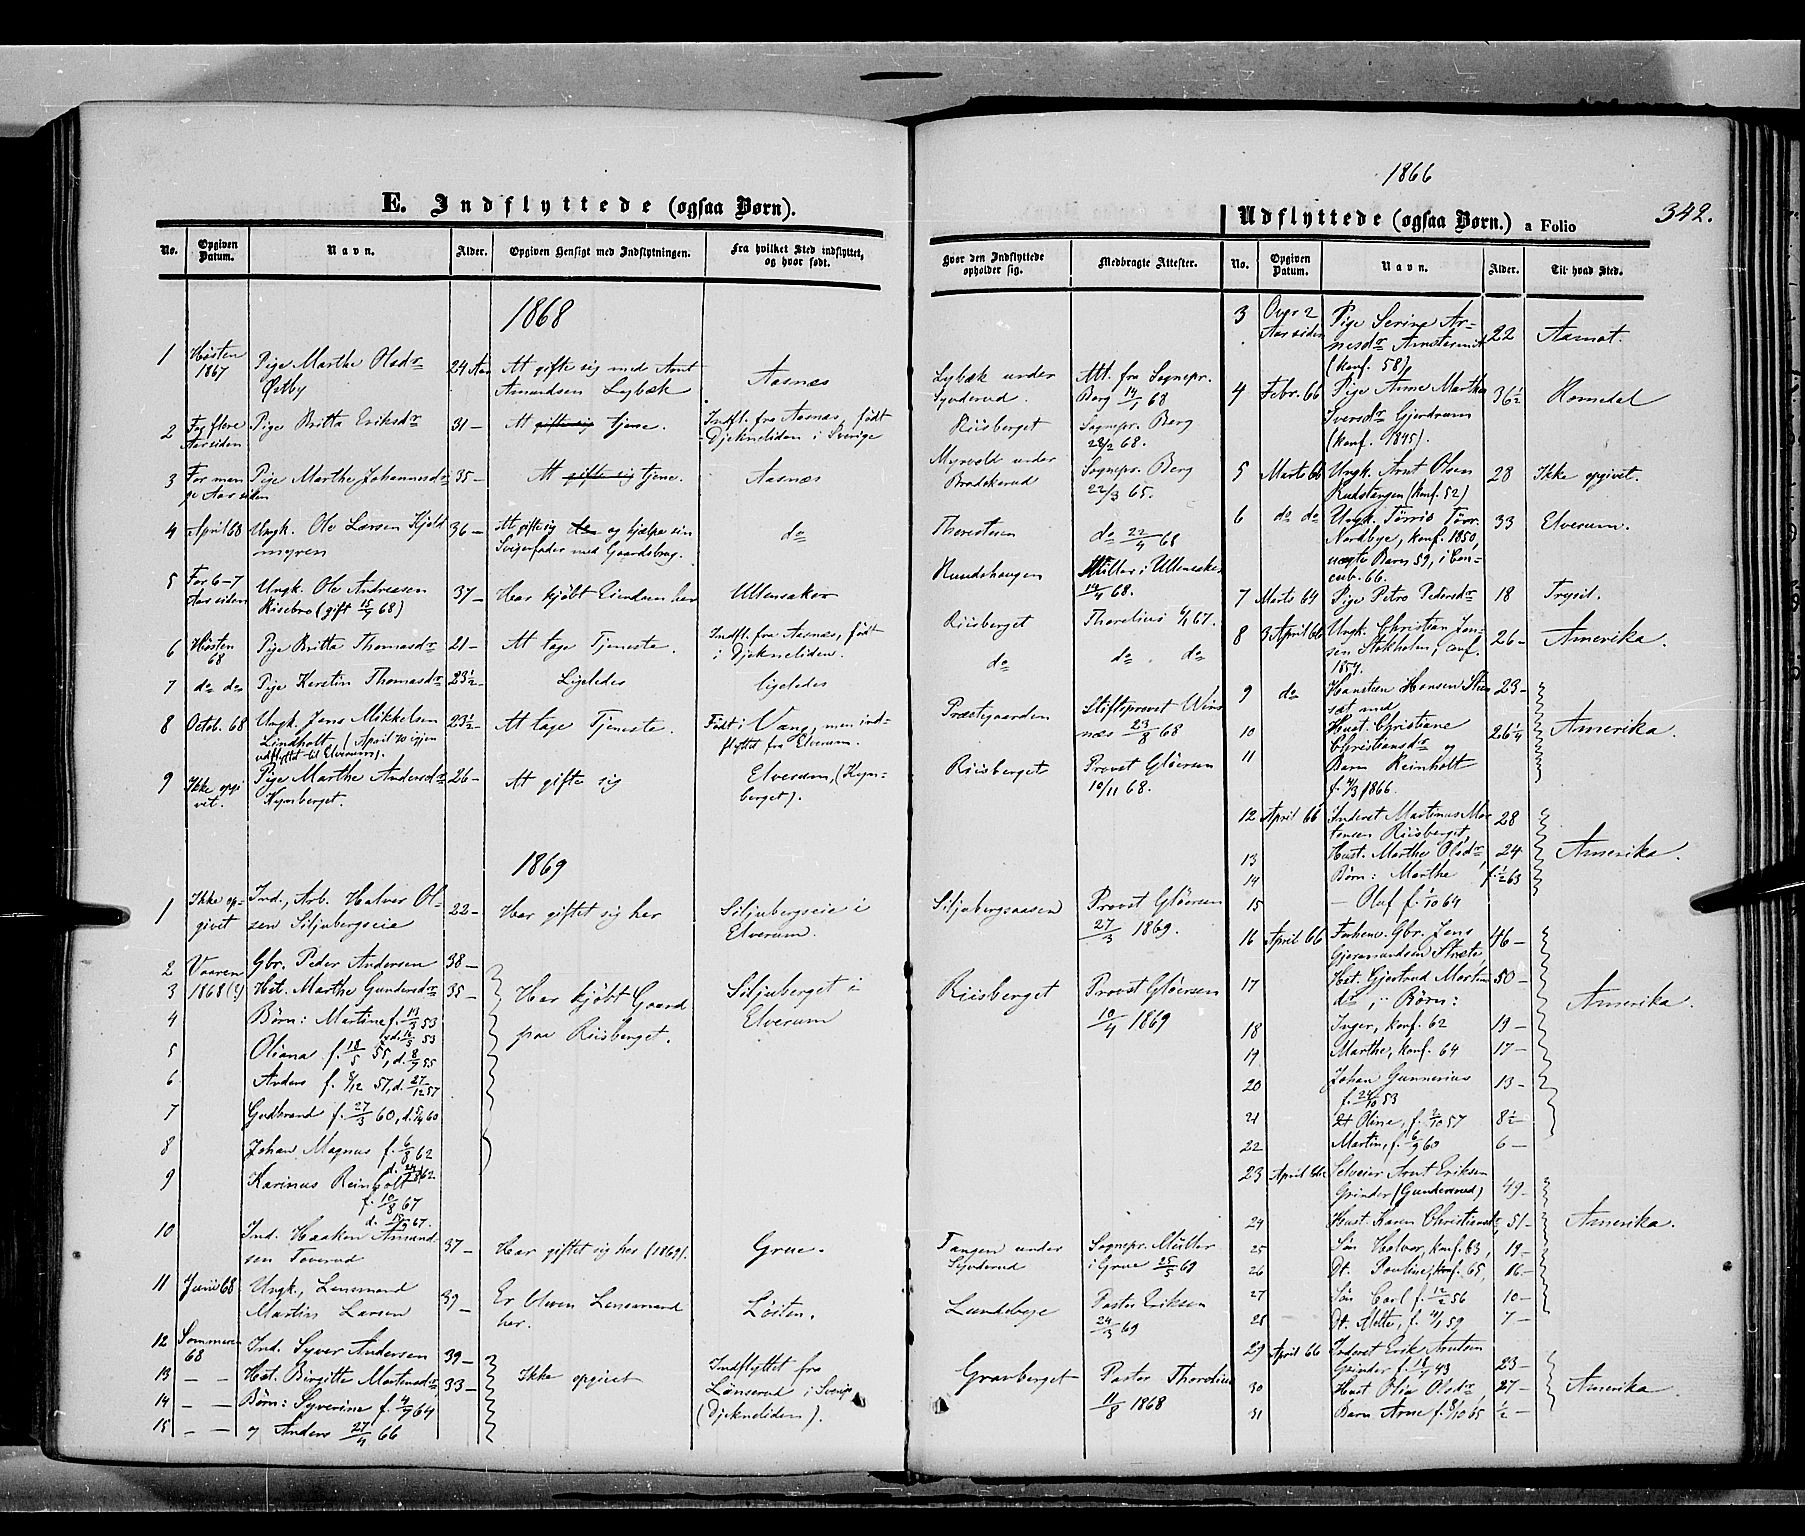 E. Indflyttede (ogsaa Børn).
No.
Opgiven Datum.
Navn.
Alder.
Opgiven Hensigt med Indflytningen.
Fra hvilket Sted indflyttet, og hvor født.
1868
1 Høsten 1867 Pige Marthe Olsdr Østby 24 Aar At gifte sig med Arnt Amundsen Lybæk Aasnæs
2 For flere Aar siden Pige Britta Eriksdr 31 — At gifte sig tjene. Indfl. fra Aasnæs, født i Djekneliden i Sverige
3 For mange Aar siden Pige Marthe Johannesdr 35 — At gifte sig tjene. Aasnæs
4 April 68 Ungk. Ole Larsen Kjeldmyren 36 — At gifte sig og hjælpe sin Svigerfader med Gaardsbrug. do
5 For 6-7 Aar siden Ungk. Ole Andreasen Risebro (gift 68) 37 — Har kjøbt Eiendom her Ullensaker
6 Høsten 68 Pige Britta Thomasdr 21 — At tage Tjeneste. Indfl. fra Aasnæs, født i Djekneliden.
7 do do Pige Kerstin Thomasdr 23½ Ligeledes ligeledes
8 Octob. 68 Ungk. Jens Mikkelsen Lindholt (April 70 igjen udflyttet til Elverum). 23½ At tage Tjeneste. Født i Vang, men indflyttet fra Elverum.
9 Ikke opgivet. Pige Marthe Andersdr Kynberget. 26 — At gifte sig Elverum, (Kynberget).
1869
1 Ikke opgivet Ind., Arb. Halvor Olsen Siljubergseie 22 — Har giftet sig her Siljubergseie i Elverum.
2 Vaaren Gbr. Peder Andersen 38 —
3 1868 (?) Hst. Marthe Gundersdr 35 — Har kjøbt Gaard paa Riisberget. Siljuberget i Elverum
4 Børn: Martine f. 13/3 53
5 Oliana f. 18/5 55, d. 8/9 55
6 Anders f. 8/12 57, d. 27/12 57
7 Gudbrand f. 27/3 60, d. 60
8 Johan Magnus f. 6/8 62
9 Karinus Reinholt f. 10/8 67
10 Ind. Haaken Amundsen Toverud 37 — Har giftet sig her (1869). Grue.
11 Juni 68 Ungk., Lensmand Martin Larsen 39 — Er bleven Lensmand her. Løiten.
12 Sommeren 68 Ind. Syver Andersen 39 —
13 — — Hst. Birgitte Mortensdr 33 — Ikke opgivet Indflyttet fra Lønserud i Sverige (Djekneliden).
14 — — Børn: Syverine f. 4/9 64
15 — — og Anders 27/4 66
1866
Udflyttede (ogsaa Børn.) a Folio 342.
Hvor den Indflyttede opholder sig.
Medbragte Attester.
No.
Opgiven Datum.
Navn.
Alder.
Til hvad Sted.
Lybæk under Synderud. Att. fra Sognepr. Berg 14/1 68
Riisberget Sognepr. Berg 28/2 68.
Myrvold under Brødskerud Sognepr. Berg 22/3 65.
do 22/4 68
Hundehaugen Müller i Ullensaker 14/4 68.
Riisberget Thorelius 67.
do do do
Præstegaarden Stiftsprovst Winsnæs 23/8 68
Riisberget Provst Gløersen 10/11 68.
Siljubergsaasen Provst Gløersen 27/3 1869.
Riisberget Provst Gløersen 10/4 1869
Tangen under Synderud Sognepr. Müller i Grue 25/5 69
Lundebye Pastor Eriksen 24/3 69
Gravberget Pastor Thorelius 11/8 1868
3 Aar siden Pige Serine Arnesdr (konf. 58), 22 Aamot.
4 Febr. 66 Pige Anne Marthe Iversdr Gjerdrum (konf. 1845). 36½ Romedal
5 Marts 66 Ungk. Arnt Olsen Rudstangen (konf. 52) 28 Ikke opgivet.
6 do do Ungk. Tørris Tørr. Nordbye, konf. 1850, uægte Barn 59, i Concub. 66. 33 Elverum.
7 Marts 64 Pige Petro Pedersdr 18 Trysil.
8 3 April 66 Ungk. Christian Jensen Stokholm, conf. 1857. 26 — Amerika.
9 do Hansteen Hansen 23 —
10 Hust. Christiane Christiansdr og 26¼ Amerika.
11 Barn Reinholt f. 4/3 1866.
12 April 66 Inderst Martinus Mortensen Riisberget, 28
13 Hust. Marthe Olsdr 24 Amerika.
14 Børn: Marthe f. ½ 63
15 — Oluf f. 1/10 64
16 April 66 Forhenv. Gbr. Jens Gjermundsen Stræte, 46 —
17 Hst. Gjertrud Martinsdr, — Børn: 50 — Amerika.
18 Inger, konf. 62 19 —
19 Marthe, konf. 64 17 —
20 Johan Gunnerius f. 24/10 53 13 —
21 Dt Oline, f. 2/10 57 8½
22 Martin, f. 6/9 60 6 —
23 April 66 Selveier Arnt Eriksen Grinder (Gundersrud) 49 —
24 Hust. Karen Christiansdr, 51 — Amerika.
25 Søn Halvor, konf. 63, 19 —
26 Dt. Pouline, konf. 65, 16 —
27 Søn Carl f. 12/2 56 10 —
28 Dt. Mette, f. 4/1 59 7 —
29 April 66 Inderst Erik Arntsen Grinder f. 43 23 —
30 Hust. Olia Olsdr, 27 — Amerika.
31 Barn Arne f. 8/10 65 ½ —